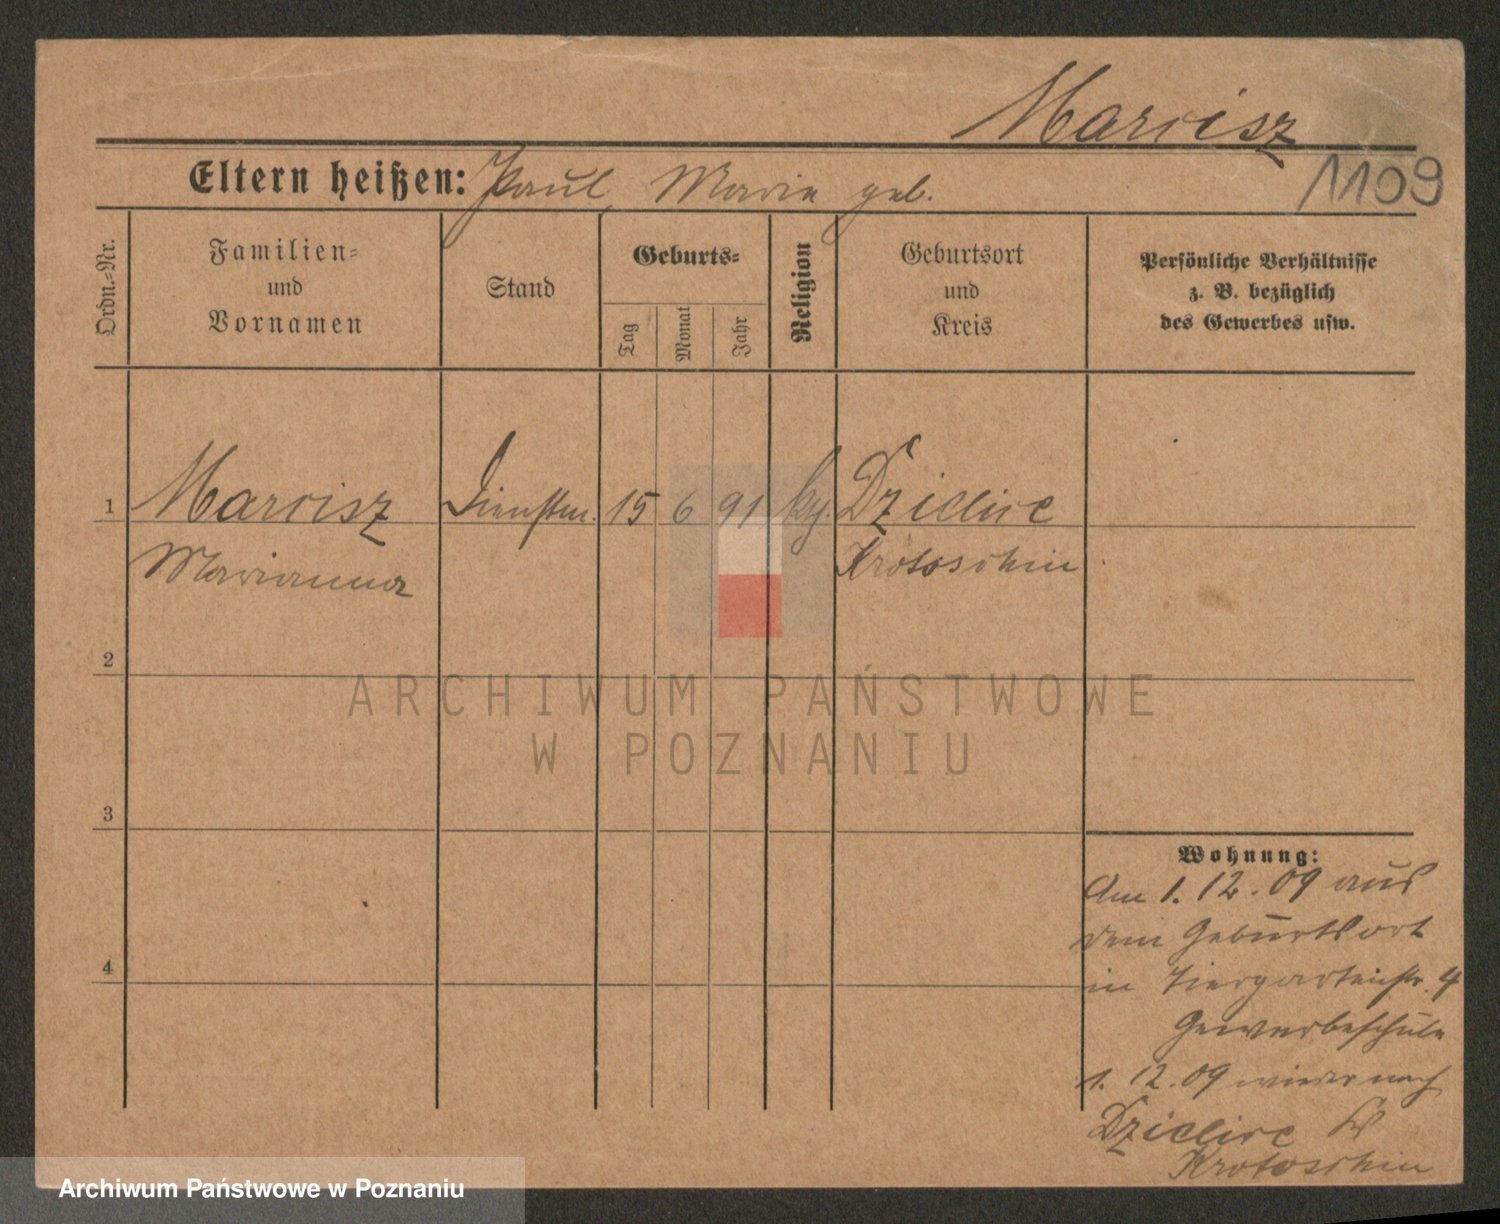 Marcisz
1109
Eltern heißen: Paul, Marie geb.
Ordn.-Nr.
Familien-
und
Vornamen
Stand
Geburts-
Tag
Monat
Jahr
Religion
Geburtsort
und
Kreis
Persönliche Verhältnisse
z. B. bezüglich
des Gewerbes usw.
1 Marcisz Dienstm. 15 6 91 Dzielice
Marianna Krotoschin
2
3
4
Wohnung:
Am 1. 12. 09 aus
dem Geburtsort
in Tiergartenstr. 4
Gewerbeschule
1. 12. 09 wieder nach
Dzielice
Krotoschin
ARCHIWUM PAŃSTWOWE
W POZNANIU
Archiwum Państwowe w Poznaniu